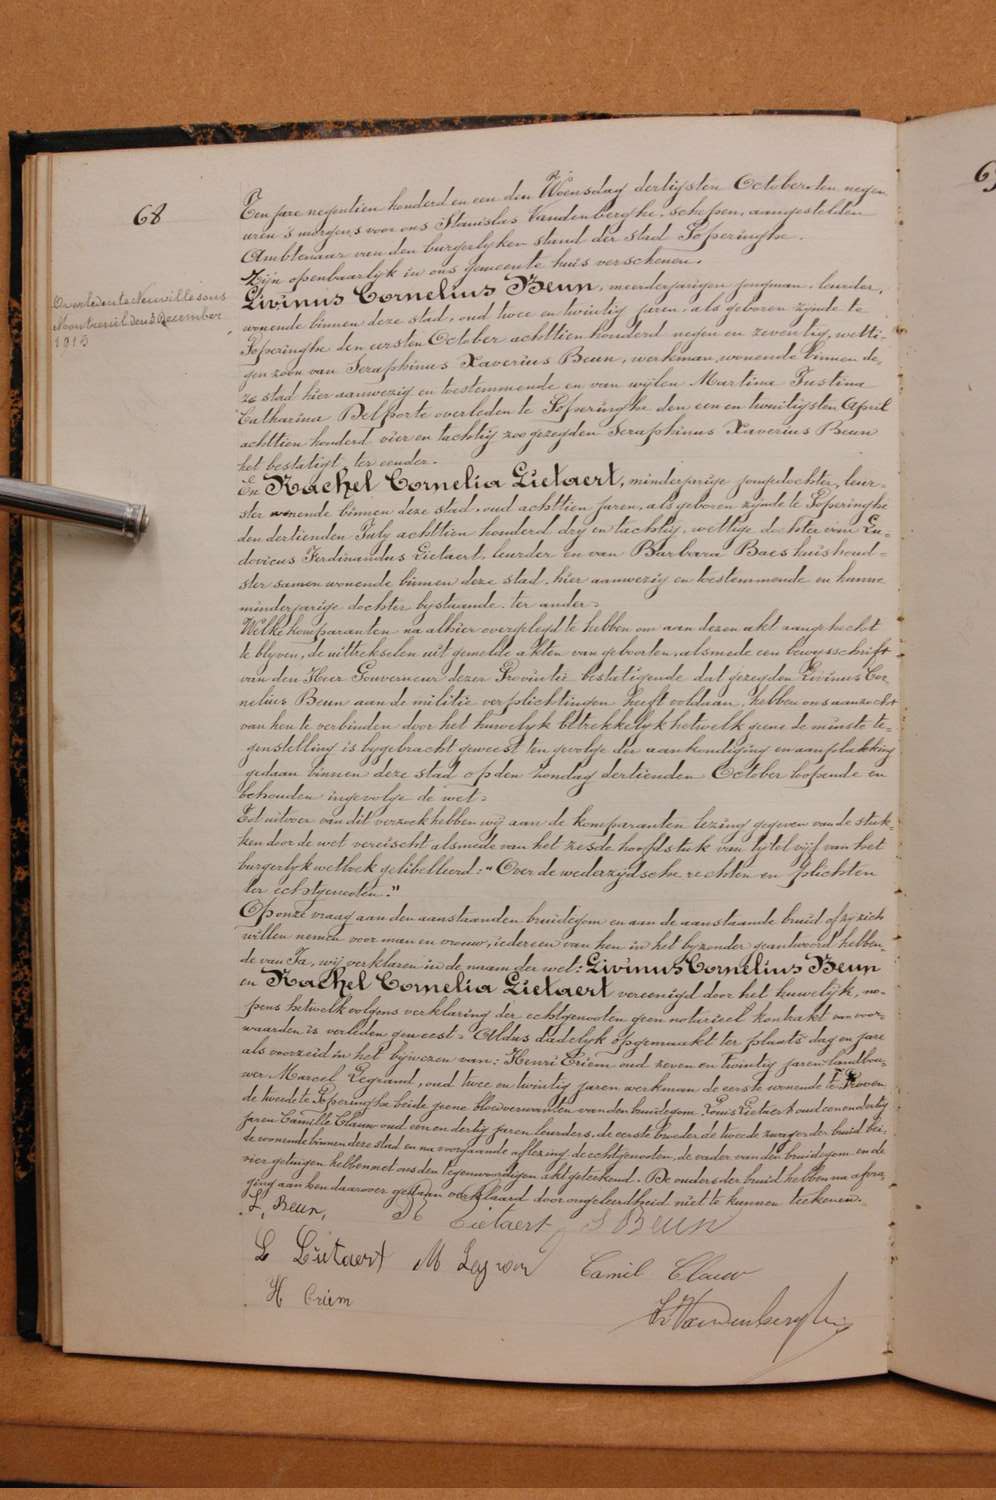 68
69
Ten jare negentien honderd en een den Woensdag dertigsten October ten negen
uren 's morgens voor ons Stanislas Vandenberghe, schepen, aangestelden
Ambtenaar van den burgerlyken stand der stad Poperinghe.
Zijn openbaarlyk in ons gemeente huis verschenen.
Overleden te Neuville sous
Montreuil den 5 December
1915
Livinus Cornelius Beun, meerderjarigen jongman, leurder,
wonende binnen deze stad, oud twee en twintig jaren, als geboren zynde te
Poperinghe den eersten October achttien honderd negen en zeventig, wetti-
gen zoon van Seraphinus Xaverius Beun, werkman, wonende binnen de-
ze stad hier aanwezig en toestemmende en van wijlen Martina Justina
Catharina Delporte overleden te Poperinghe den een en twintigsten April
achttien honderd vier en tachtig zoo gezeyden Seraphinus Xaverius Beun
het bestatigt, ter eender.
En Rachel Cornelia Lietaert, minderjarige jongedochter, leur-
ster wonende binnen deze stad, oud achttien jaren, als geboren zynde te Poperinghe
den dertienden July achttien honderd dry en tachtig, wettige dochter van Lu-
dovicus Ferdinandus Lietaert, leurder en van Barbara Baes huishoud-
ster samen wonende binnen deze stad, hier aanwezig en toestemmende en hunne
minderjarige dochter bystaande, ter ander.
Welke komparanten na alhier overgelegd te hebben om aan dezen akt aangehecht
te blyven, de uittrekselen uit gemelde akten van geboorten, alsmede een bewysschrift
van den Heer Gouverneur dezer Provintie bestatigende dat gezeyden Livinus Cor
nelius Beun aan de militie verplichtingen heeft voldaan, hebben ons aanzocht
van hen te verbinden door het huwelyk betrekkelyk hetwelk geene de minste te-
genstelling is bygebracht geweest ten gevolge der aankondiging en aanplakking
gedaan binnen deze stad op den zondag dertienden October loopende en
behouden ingevolge de wet.
Tot uitvoer van dit verzoek hebben wij aan de komparanten lezing gegeven van de stuk-
ken door de wet vereischt alsmede van het zesde hoofdstuk van tytel vijf van het
burgerlyk wetboek gelibelleerd: "Over de wederzydsche rechten en plichten
der echtgenooten."
Op onze vraag aan den aanstaanden bruidegom en aan de aanstaande bruid of zy zich
willen nemen voor man en vrouw, iedereen van hen in het byzonder geantwoord hebben-
de van Ja, wij verklaren in de naam der wet: Livinus Cornelius Beun
en Rachel Cornelia Lietaert vereenigd door het huwelijk, no-
pens hetwelk volgens verklaring der echtgenooten geen notarieel kontrakt van voor-
waarden is verleden geweest. Aldus dadelyk opgemaakt ter plaats dag en jare
als voorzeid in het bijwezen van: Henri Criem oud zeven en twintig jaren landbou-
wer, Marcel Legrand, oud twee en twintig jaren werkman de eerste wonende te Proven
de tweede te Poperinghe beide geene bloedverwanten van den bruidegom, Louis Lietaert oud een en dertig
jaren Camille Clauw oud een en dertig jaren leurders, de eerste broeder de tweede zwager der bruid bei-
de wonende binnen deze stad en na voorgaande aflezing de echtgenooten, de vader van den bruidegom en de
vier getuigen hebben met ons den tegenwoordigen akt geteekend. De ouders der bruid hebben na afvra-
ging aan hen daarover gedaan verklaard door ongeleerdheid niet te kunnen teekenen.
L, Beun, R Lietaert S Beun
L Lietaert M Legran Camil Clauw
H Criem St Vandenberghe